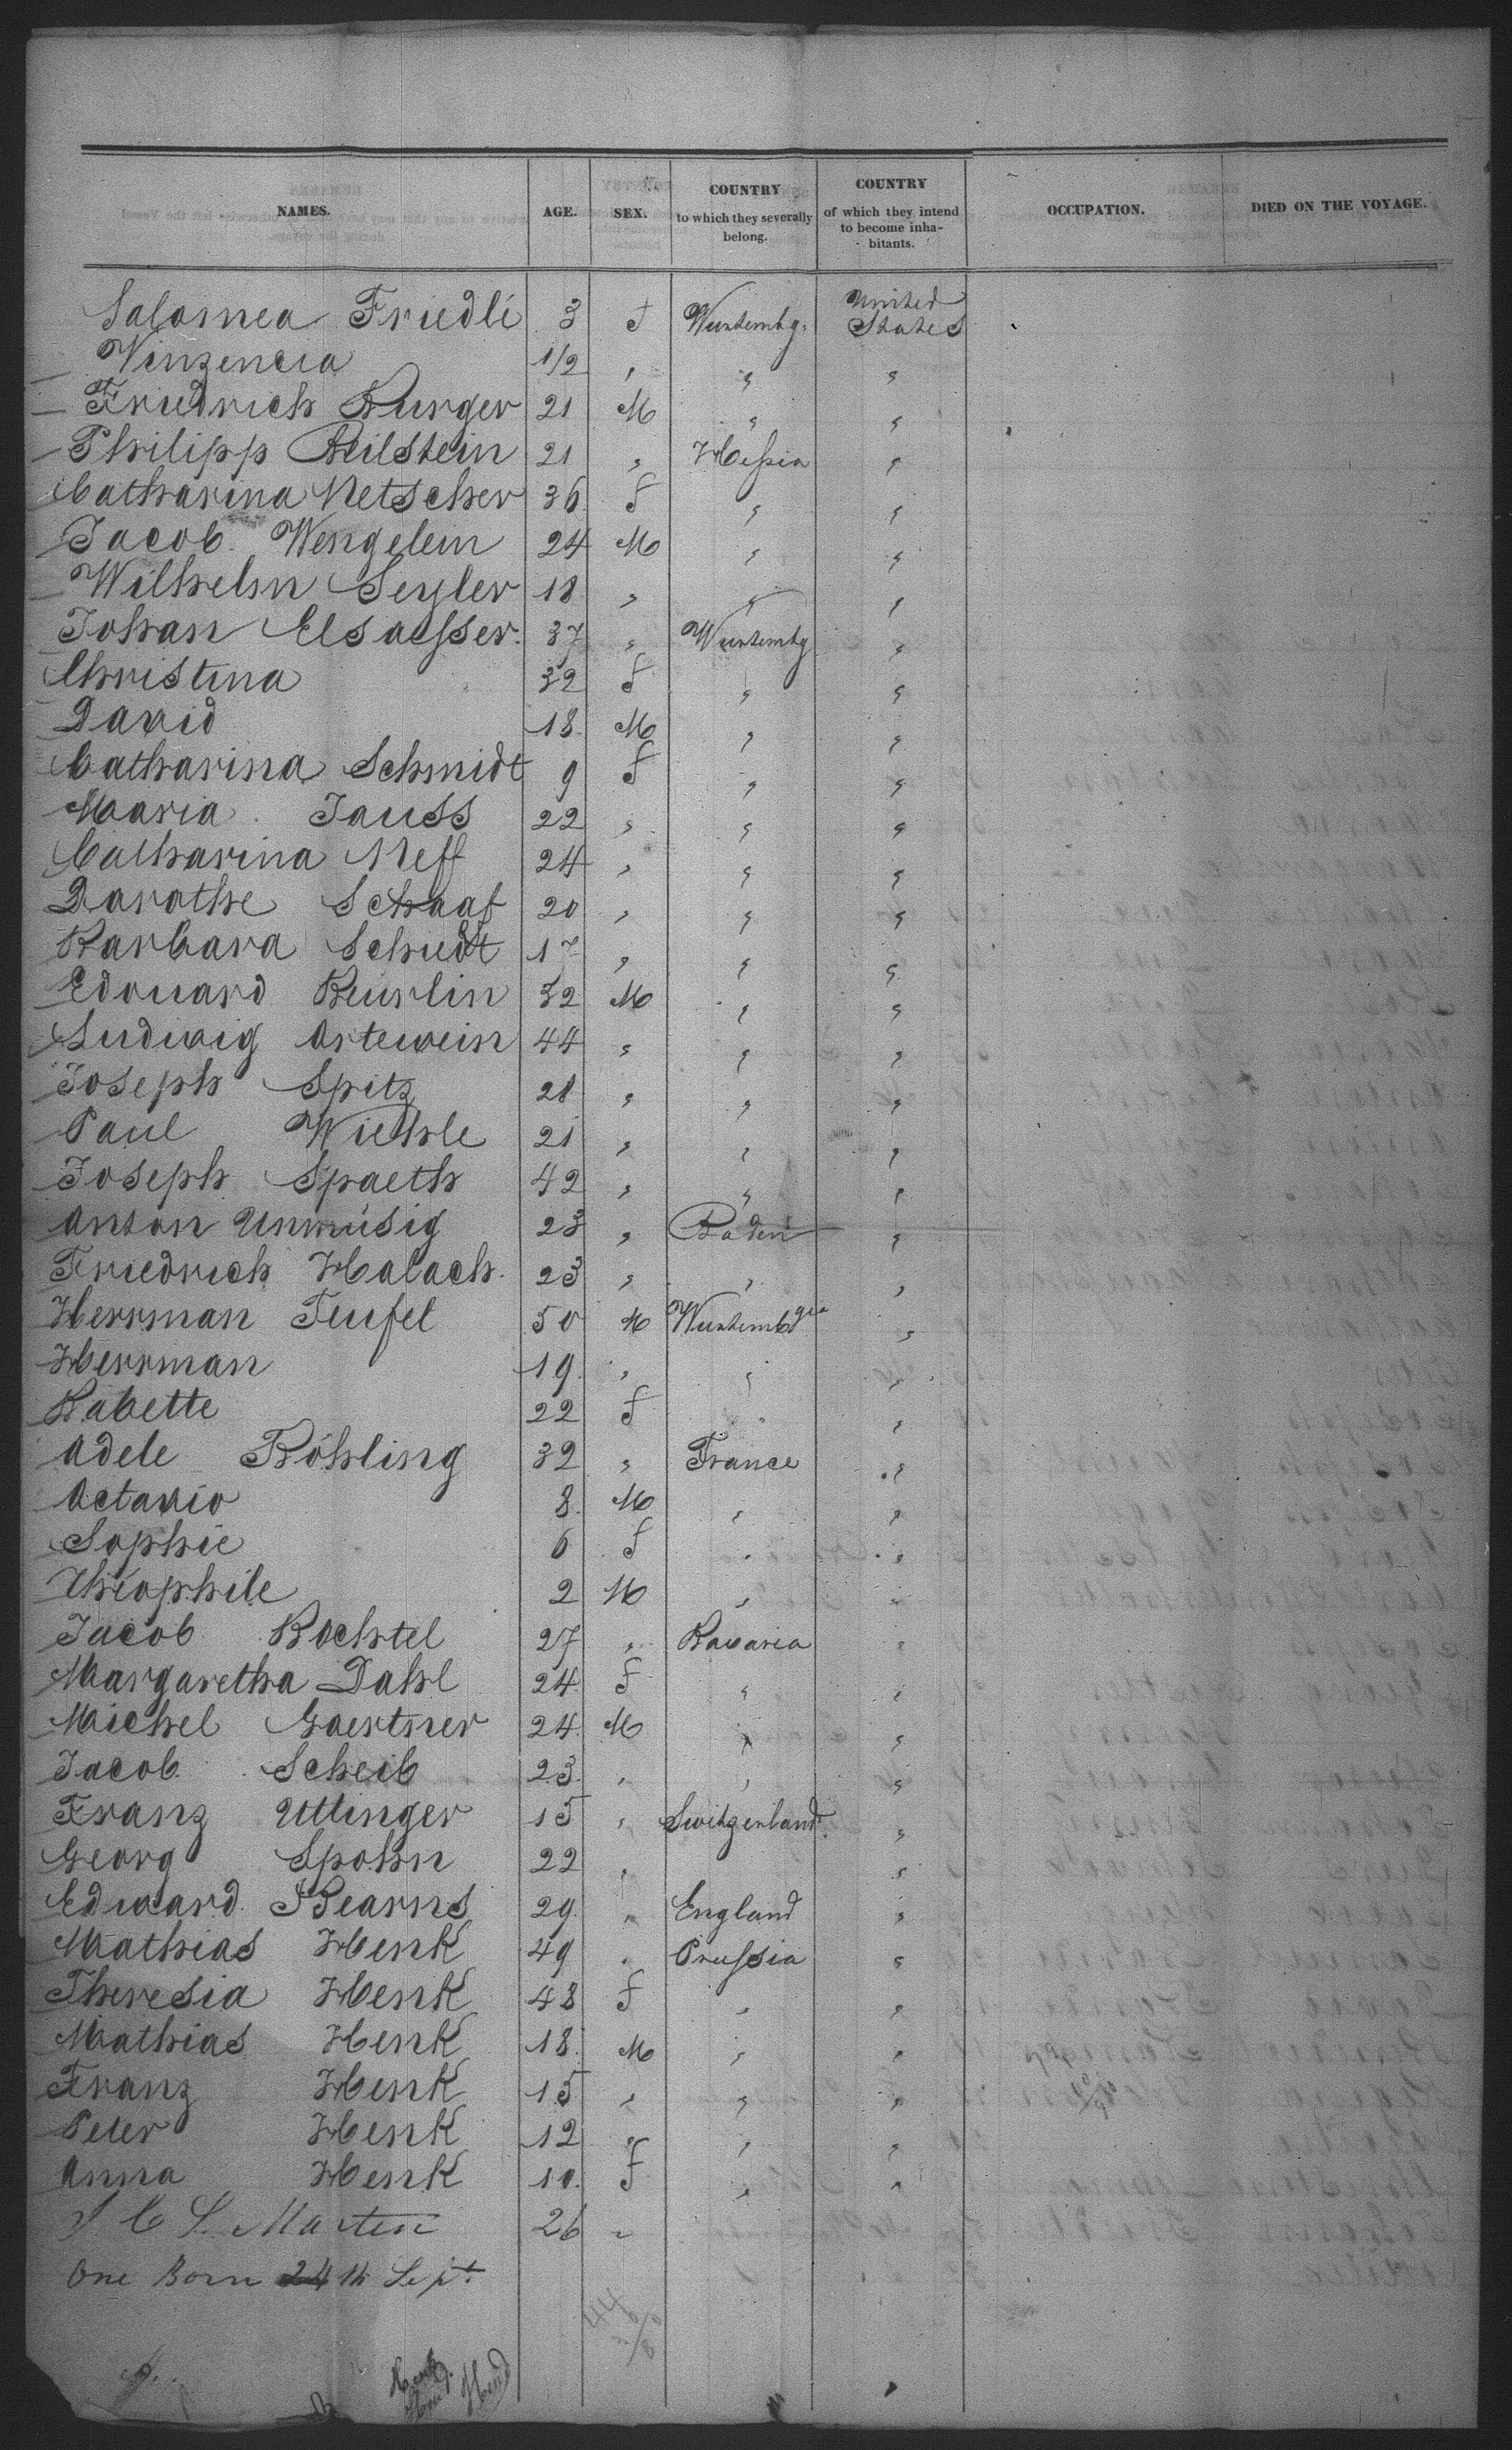 NAMES. AGE. SEX. COUNTRY to which they severally belong. COUNTRY of which they intend to become inhabitants. OCCUPATION. DIED ON THE VOYAGE.
Salomea Friedli 3 f Wurtembg. United States
Vinzencia 1/2 " " "
Friedrich Burger 21 M " "
Philipp Beilstein 21 " Hessia "
Catharina Netscher 36 f " "
Jacob Wengelein 24 M " "
Wilhelm Seyler 18 " " "
Johan Elsaesser. 37 " Wurtembg "
Christina 32 f " "
David 18 M " "
Catharina Schmidt 9 f " "
Maria Jauss 22 " " "
Catharina Neff 24 " " "
Darothe Schaaf 20 " " "
Barbara 17 " " "
Edouard Beurlin 32 M " "
Ludwig Ostewein 44 " " "
Joseph Spitz 28 " " "
Paul Wiehle 21 " " "
Joseph Spaeth 42 " " "
Anton Unmüsig 23 " Baden "
Friedrich Halach. 23 " " "
Herrman Teufel 50 M "
Herrman 19. " " "
Babette 22 f " "
Adele Röhling 32 " France "
Octavio 8. M " "
Sophie 6 f " "
Théophile 2 M " "
Jacob Bochtel 27 " Bavaria "
Margaretha Dahl 24. f " "
Michel Gaertner 24. M " "
Jacob Scheib 23. " " "
Franz Uttinger 15 " Switzerland. "
Georg Spohn 22 " "
Edward Kearns 29. " England "
Mathias Henk 49 " Prussia "
Theresia Henk 48 f " "
Mathias Henk 18. M " "
Franz Henk 15 " " "
Peter Henk 12 " " "
Anna Henk 10. f " "
Martin 26 "
One Born 24 th Sept.